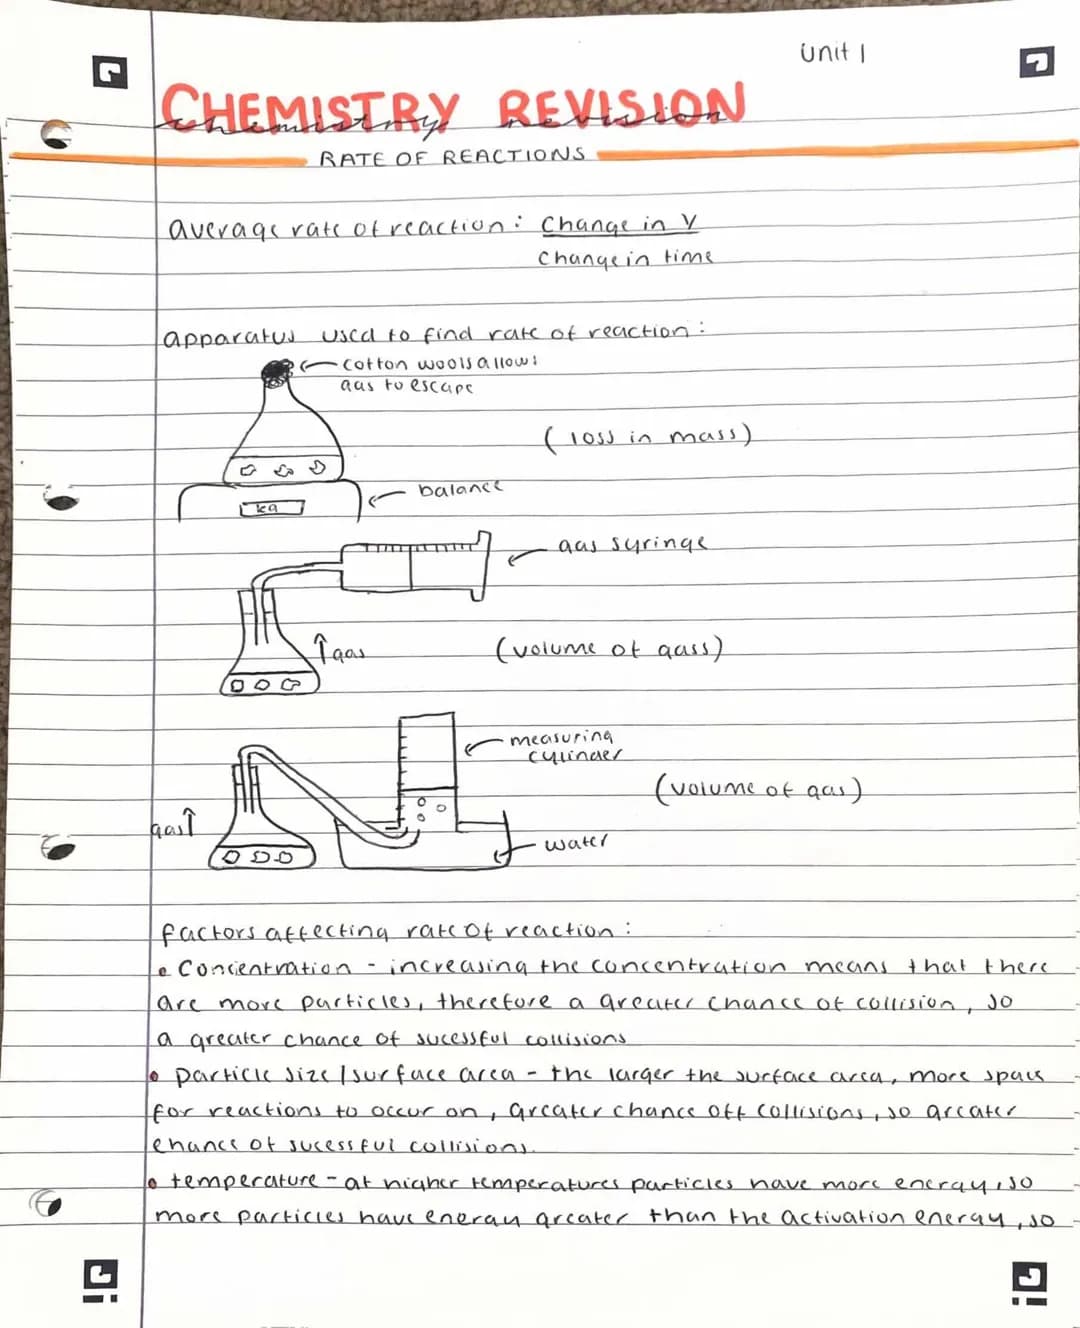 Unit 1
CHEMISTRY REVISION
chemistry revision
RATE OF REACTIONS
average rate of reaction: Change in V
Change in time
apparatus used to find rate of reaction:
cotton wools allows
gas to escape
(loss in mass)
balance
kg
gas syringe
gas
(volume of gass)
measuring
cylinder
(volume of gas)
gas
water
factors affecting rate of reaction:
• Concentration - increasing the concentration means that there
are more particles, therefore a greater chance of collision, so
a greater chance of sucessful collisions
• particle size/surface area - the larger the surface area, more space
for reactions to occur on, greater chance off collisions, so greater
chance of sucessful collisions.
• temperature - at higher temperatures particles have more energy, so
more particles have energy greater than the activation energy, so